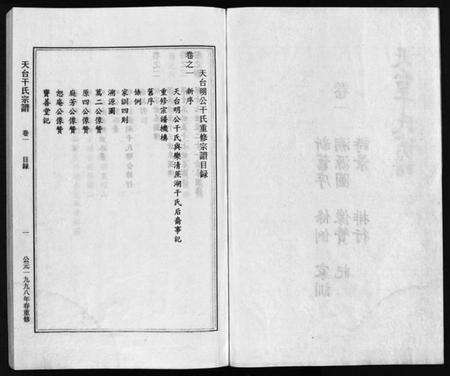 天台明公干氏重修宗譜目録
卷之一
新序
天台明公干氏與樂清蔗湖干氏后裔事記
重修宗譜機構
舊序
條例
家訓四则
溯源圖
萬二公像贊
原四公像贊
庭芳公像贊
恕庵公像贊
寶善堂記
天台干氏宗譜
卷一
目録
一
公元一九九八年春重修